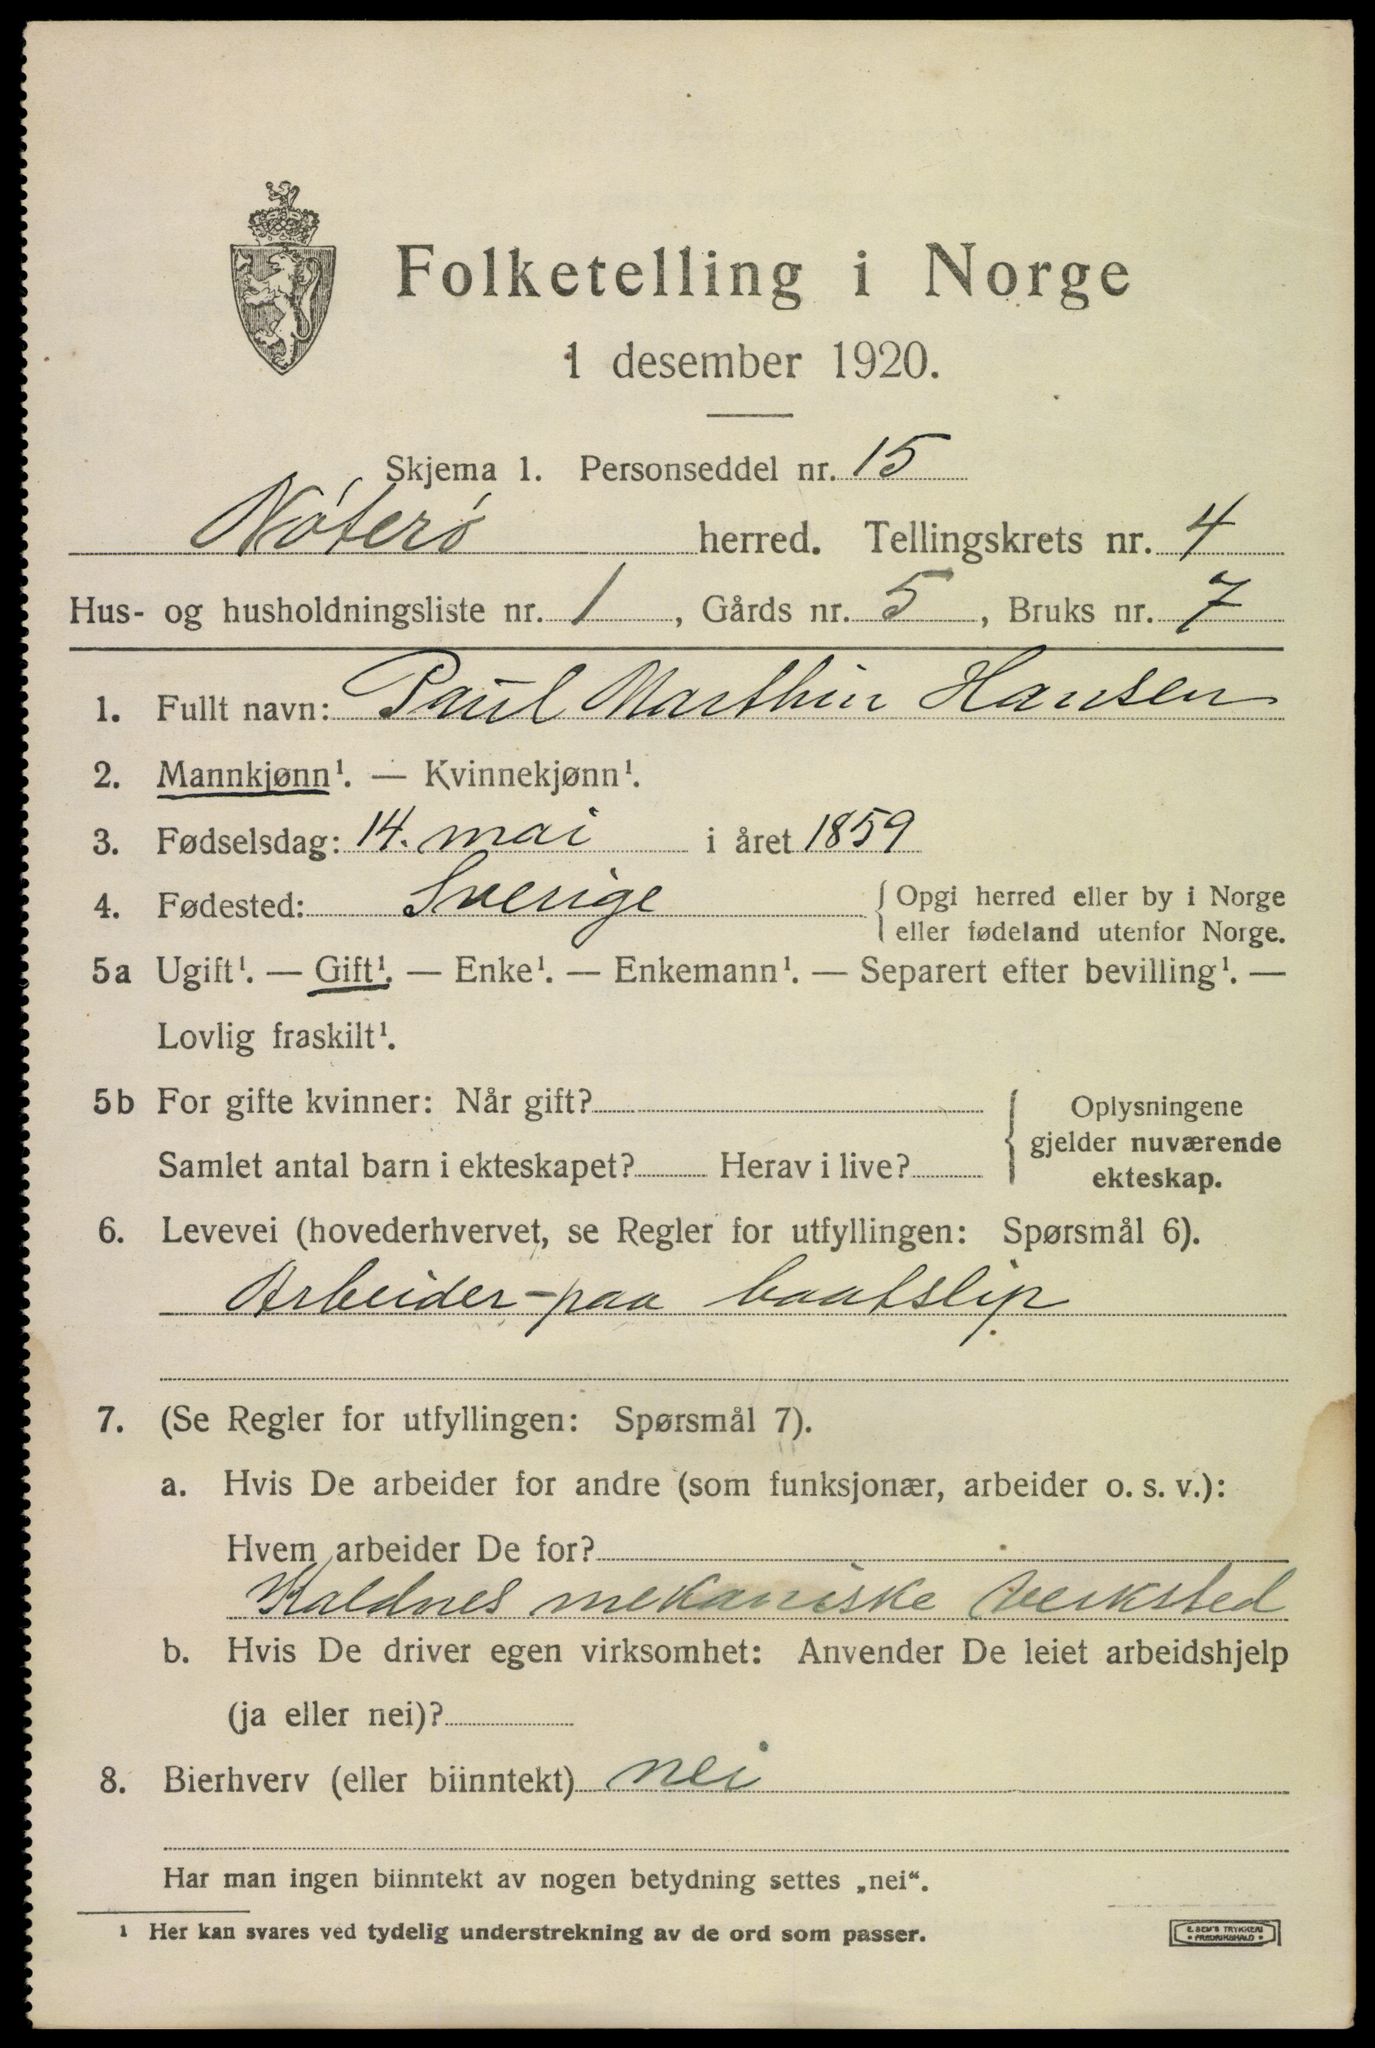 Folketelling i Norge
1 desember 1920.
Skjema 1. Personseddel nr. 15
Nøterø herred. Tellingskrets nr. 4
Hus- og husholdningsliste nr. 1, Gårds nr. 5, Bruks nr. 7
1. Fullt navn: Paul Marthin Hansen
2. Mannkjønn¹. — Kvinnekjønn¹.
3. Fødselsdag: 14. mai i året 1859
4. Fødested: Sverige { Opgi herred eller by i Norge
eller fødeland utenfor Norge.
5a Ugift¹. — Gift¹. — Enke¹. — Enkemann¹. — Separert efter bevilling¹. —
Lovlig fraskilt¹.
5b For gifte kvinner: Når gift?
Samlet antal barn i ekteskapet? Herav i live?
{ Oplysningene
gjelder nuværende
ekteskap.
6. Levevei (hovederhvervet, se Regler for utfyllingen: Spørsmål 6).
Arbeider-paa baatslip
7. (Se Regler for utfyllingen: Spørsmål 7).
a. Hvis De arbeider for andre (som funksjonær, arbeider o. s. v.):
Hvem arbeider De for?
Kaldnes mekaniske verksted
b. Hvis De driver egen virksomhet: Anvender De leiet arbeidshjelp
(ja eller nei)?
8. Bierhverv (eller biinntekt) nei
Har man ingen biinntekt av nogen betydning settes „nei“.
¹ Her kan svares ved tydelig understrekning av de ord som passer.
E. SEM'S TRYKKERI
FREDRIKSHALD